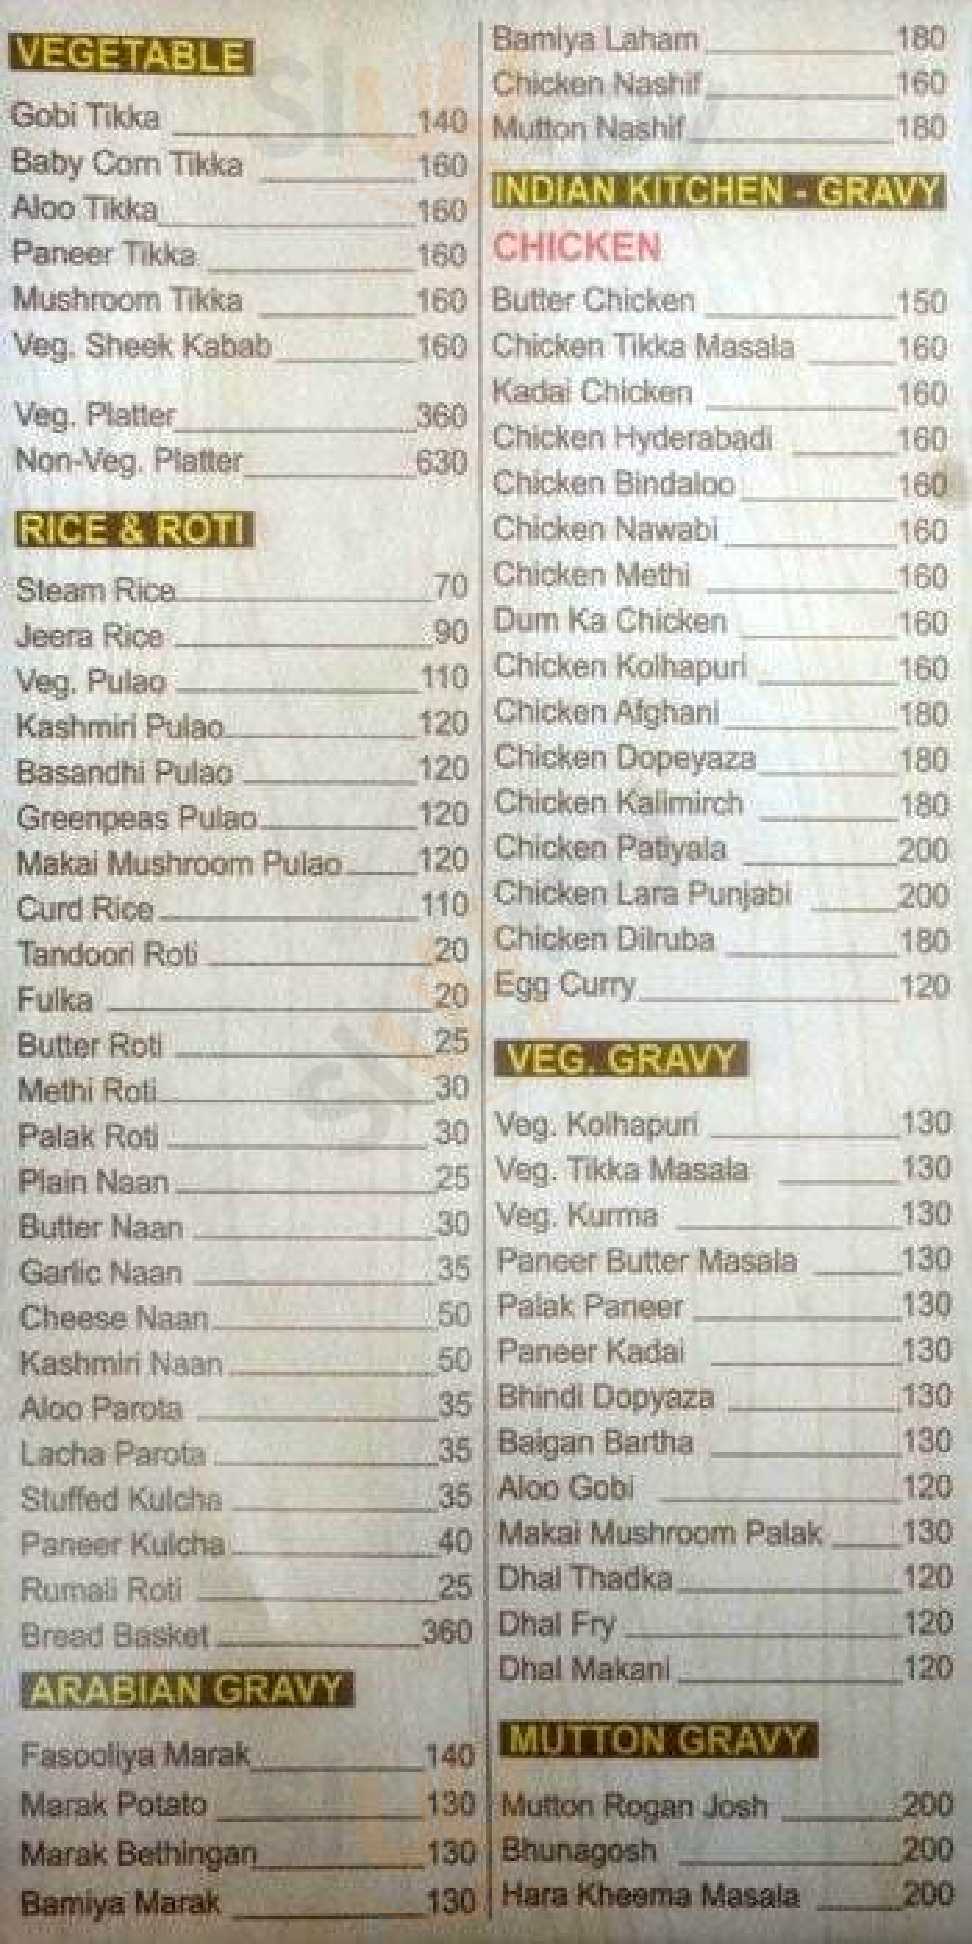 VEGETABLE
Gobi Tikka 140
Baby Corn Tikka 160
Aloo Tikka 160
Paneer Tikka 160
Mushroom Tikka 160
Veg. Sheek Kabab 160
Veg. Platter 360
Non-Veg. Platter 630
RICE & ROTI
Steam Rice 70
Jeera Rice 90
Veg. Pulao 110
Kashmiri Pulao 120
Basandhi Pulao 120
Greenpeas Pulao 120
Makai Mushroom Pulao 120
Curd Rice 110
Tandoori Roti 20
Fulka 20
Butter Roti 25
Methi Roti 30
Palak Roti 30
Plain Naan 25
Butter Naan 30
Garlic Naan 35
Cheese Naan 50
Kashmiri Naan 50
Aloo Parota 35
Lacha Parota 35
Stuffed Kulcha 35
Paneer Kulcha 40
Rumali Roti 25
Bread Basket 360
ARABIAN GRAVY
Fasooliya Marak 140
Marak Potato 130
Marak Bethingan 130
Bamiya Marak 130
Bamiya Laham 180
Chicken Nashif 160
Mutton Nashif 180
INDIAN KITCHEN - GRAVY
CHICKEN
Butter Chicken 150
Chicken Tikka Masala 160
Kadai Chicken 160
Chicken Hyderabadi 160
Chicken Bindaloo 160
Chicken Nawabi 160
Chicken Methi 160
Dum Ka Chicken 160
Chicken Kolhapuri 160
Chicken Afghani 180
Chicken Dopeyaza 180
Chicken Kalimirch 180
Chicken Patiyala 200
Chicken Lara Punjabi 200
Chicken Dilruba 180
Egg Curry 120
VEG. GRAVY
Veg. Kolhapuri 130
Veg. Tikka Masala 130
Veg. Kurma 130
Paneer Butter Masala 130
Palak Paneer 130
Paneer Kadai 130
Bhindi Dopyaza 130
Baigan Bartha 130
Aloo Gobi 120
Makai Mushroom Palak 130
Dhal Thadka 120
Dhal Fry 120
Dhal Makani 120
MUTTON GRAVY
Mutton Rogan Josh 200
Bhunagosh 200
Hara Kheema Masala 200